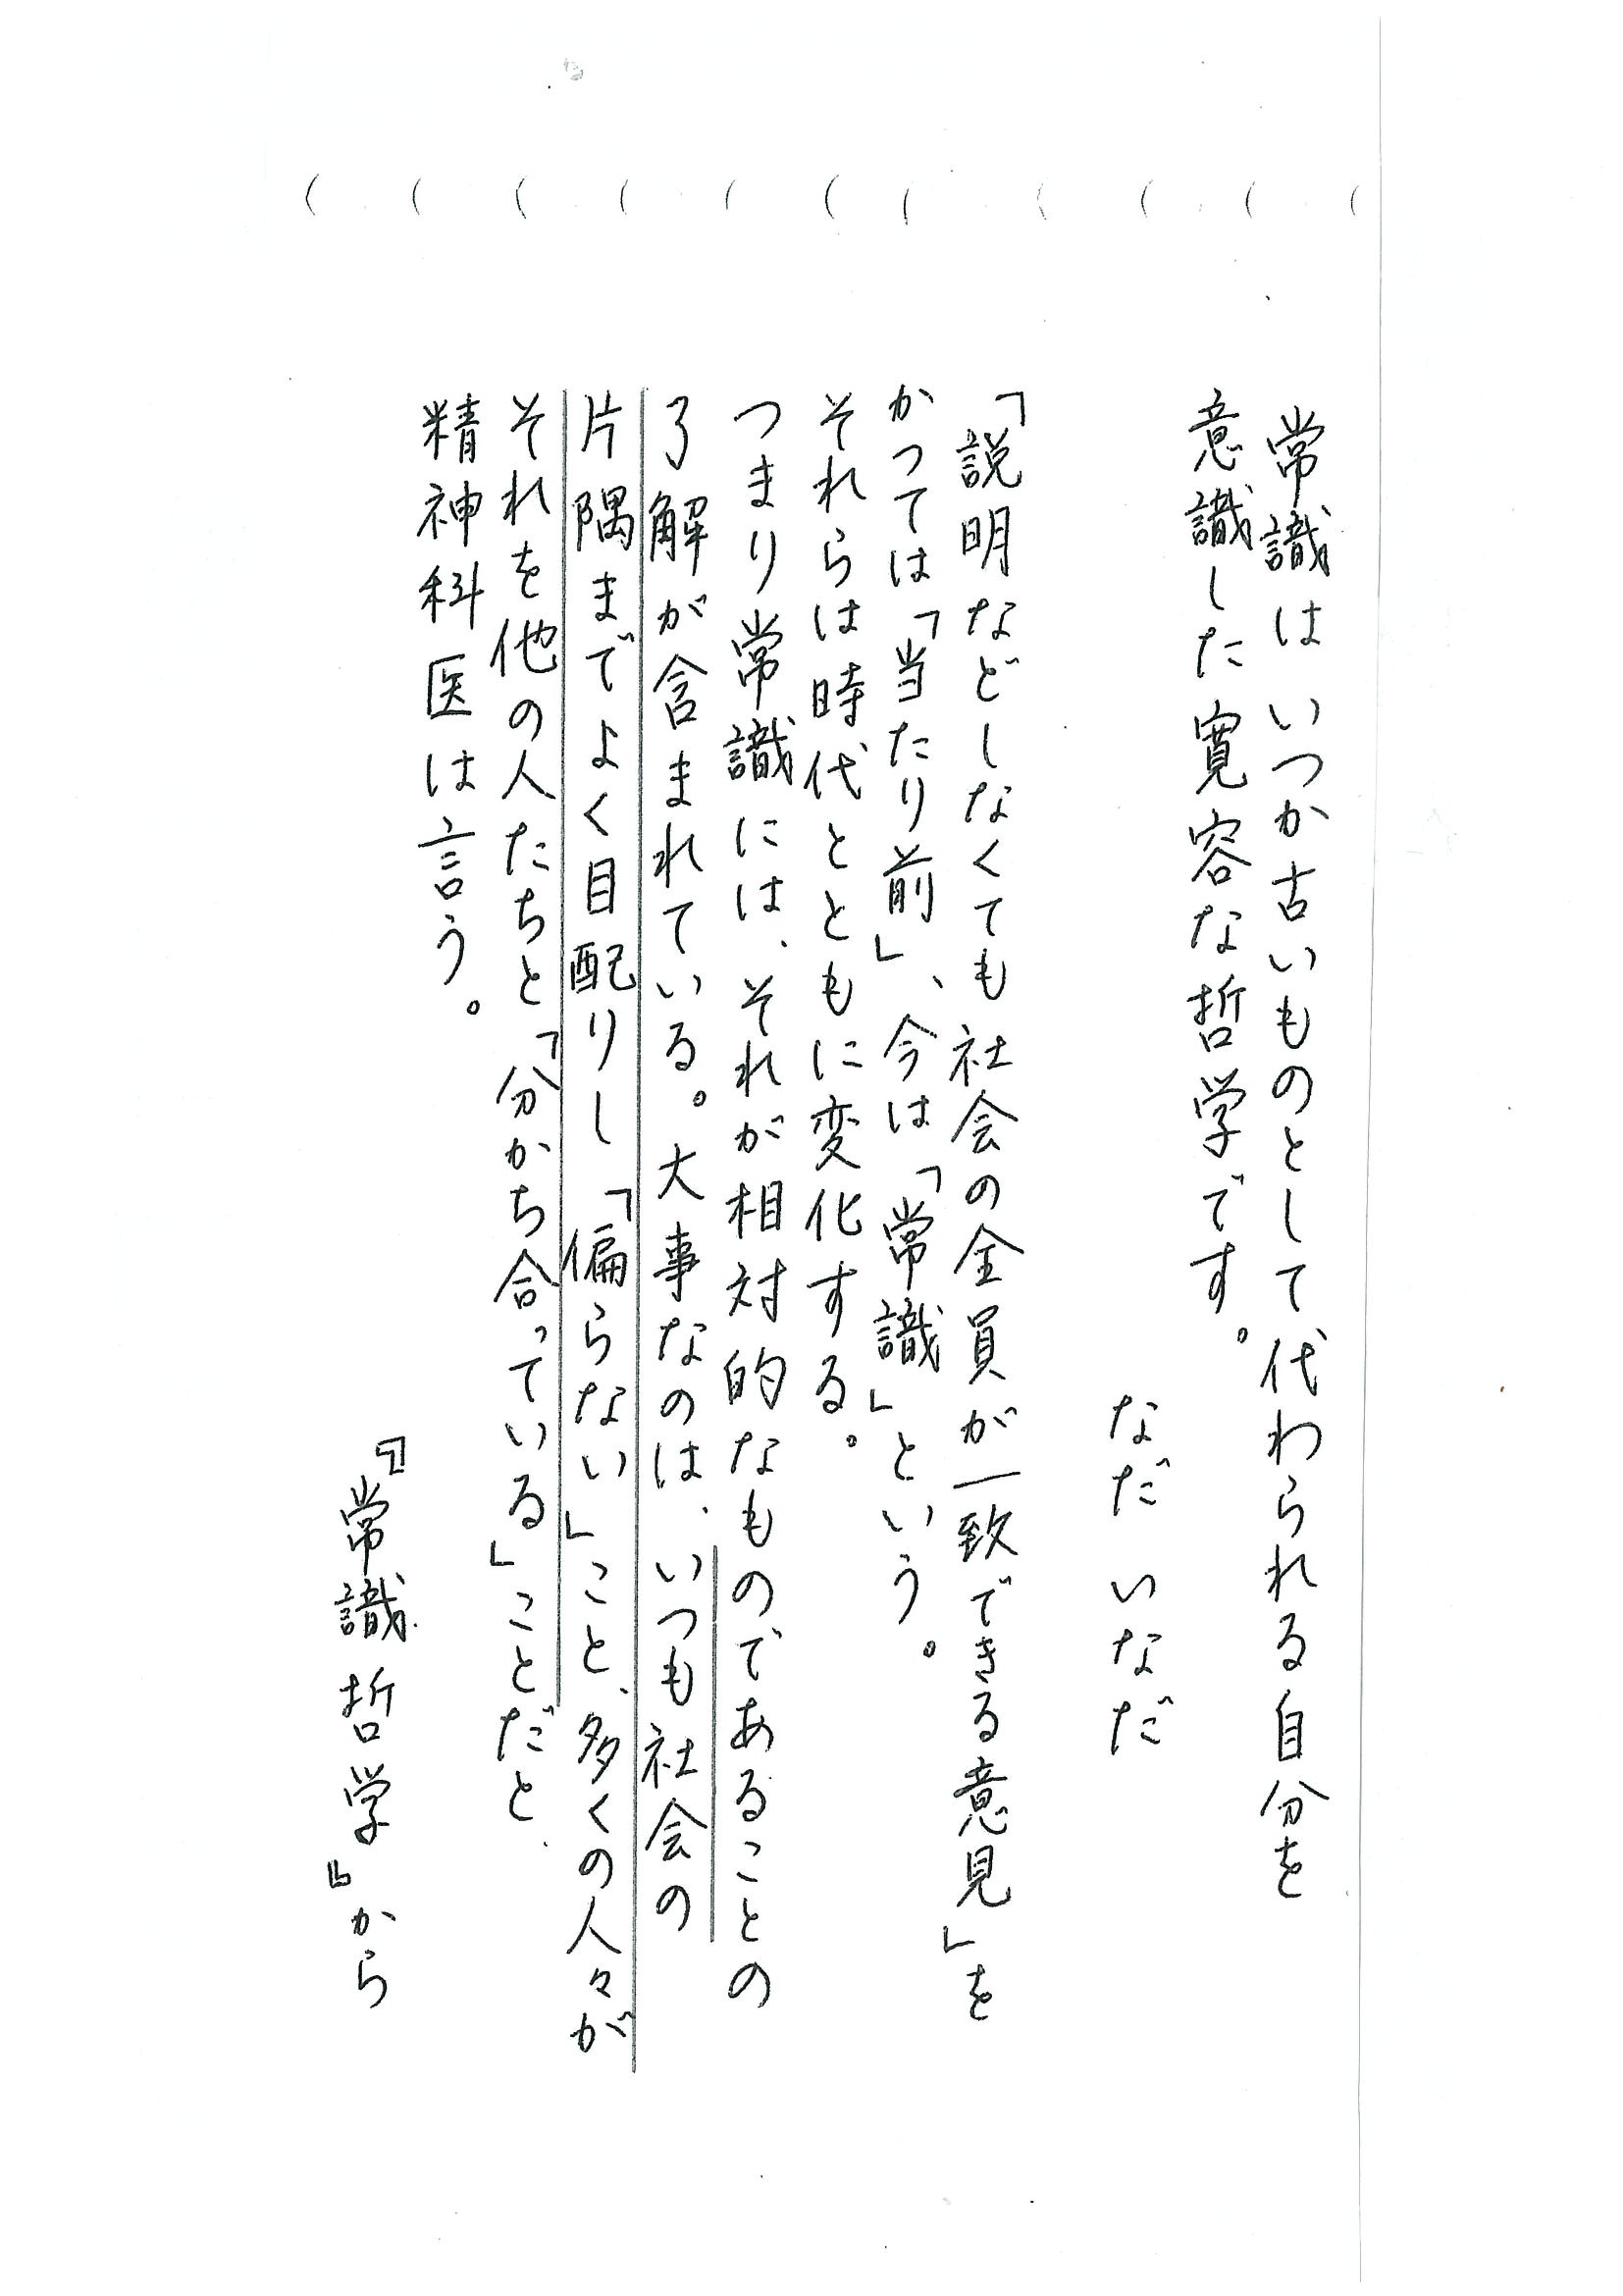 常識はいつか古いものとして代わられる自分を
意識した寛容な哲学です。
なだ いなだ
「説明などしなくても社会の全員が一致できる意見」を
かつては「当たり前」、今は「常識」という。
それらは時代とともに変化する。
つまり常識には、それが相対的なものであることの
了解が含まれている。大事なのは、いつも社会の
片隅までよく目配りし「偏らない」こと、多くの人々が
それを他の人たちと「分かち合っている」ことだと、
精神科医は言う。
『常識哲学』から